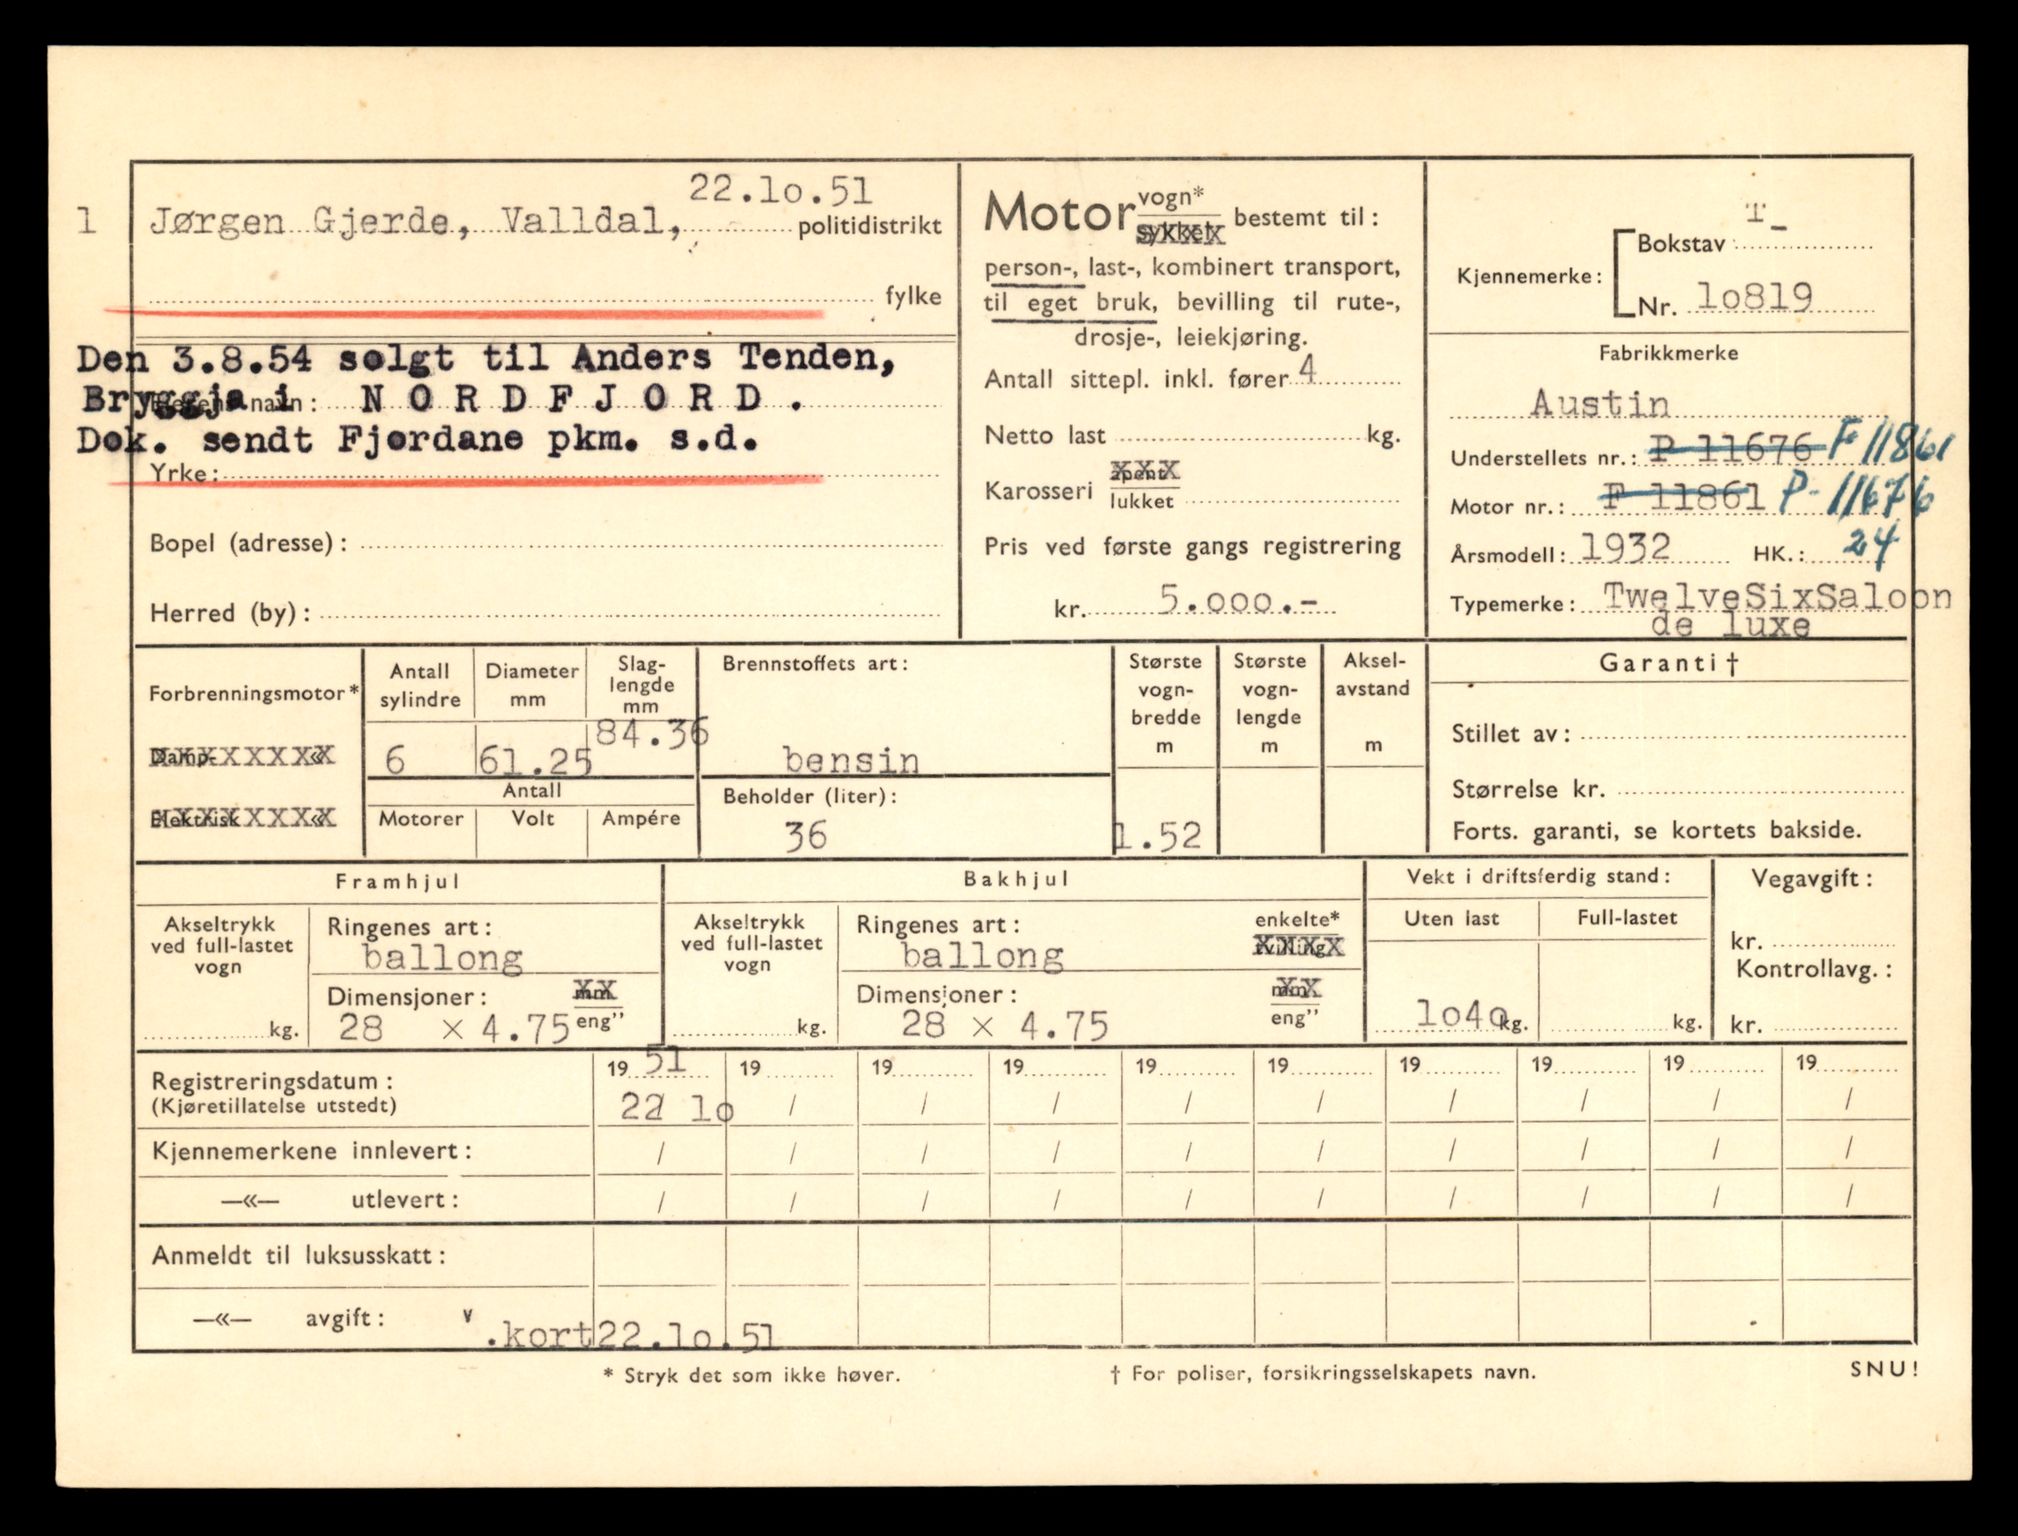 22.1o.51
1 Jørgen Gjerde, Valldal, politidistrikt
fylke
Den 3.8.54 solgt til Anders Tenden,
Bryggja i N O R D F J O R D .
Eierens navn:
Dok. sendt Fjordane pkm. s.d.
Yrke:
Bopel (adresse):
Herred (by):
Motor vogn*
sykkel bestemt til:
person-, last-, kombinert transport,
til eget bruk, bevilling til rute-,
drosje-, leiekjøring.
Antall sittepl. inkl. fører 4
Netto last kg.
Karosseri åpent
lukket
Pris ved første gangs registrering
kr. 5.ooo.-
Kjennemerke: Bokstav T_
Nr. 1o819
Fabrikkmerke
Austin
Understellets nr.: P 11676 F 11861
Motor nr.: F 11861 P-11676
Årsmodell: 1932 HK.: 24
Typemerke: TwelveSixSaloon
de luxe
Forbrenningsmotor*
Damp- «
Elektrisk «
Antall sylindre 6
Diameter mm 61.25
Slag-
lengde
mm
84.36
Antall
Motorer Volt Ampére
Brennstoffets art:
bensin
Beholder (liter):
36
Største vogn-bredde m
1.52
Største vogn-lengde m
Aksel-avstand m
Garanti †
Stillet av:
Størrelse kr.
Forts. garanti, se kortets bakside.
Framhjul
Akseltrykk
ved full-lastet
vogn
kg.
Ringenes art:
ballong
Dimensjoner: mm
28 × 4.75 eng”
Bakhjul
Akseltrykk
ved full-lastet
vogn
kg.
Ringenes art: enkelte*
ballong tvilling
Dimensjoner: mm
28 × 4.75 eng”
Vekt i driftsferdig stand:
Uten last Full-lastet
1o4o kg. kg.
Vegavgift:
kr.
Kontrollavg.:
kr.
19 51 19 19 19 19 19 19 19 19 19
Registreringsdatum:
(Kjøretillatelse utstedt) 22/ 1o / / / / / / / / /
Kjennemerkene innlevert: / / / / / / / / / /
—«— utlevert: / / / / / / / / / /
Anmeldt til luksusskatt:
—«— avgift: v .kort22.1o.51
* Stryk det som ikke høver. † For poliser, forsikringsselskapets navn. SNU!